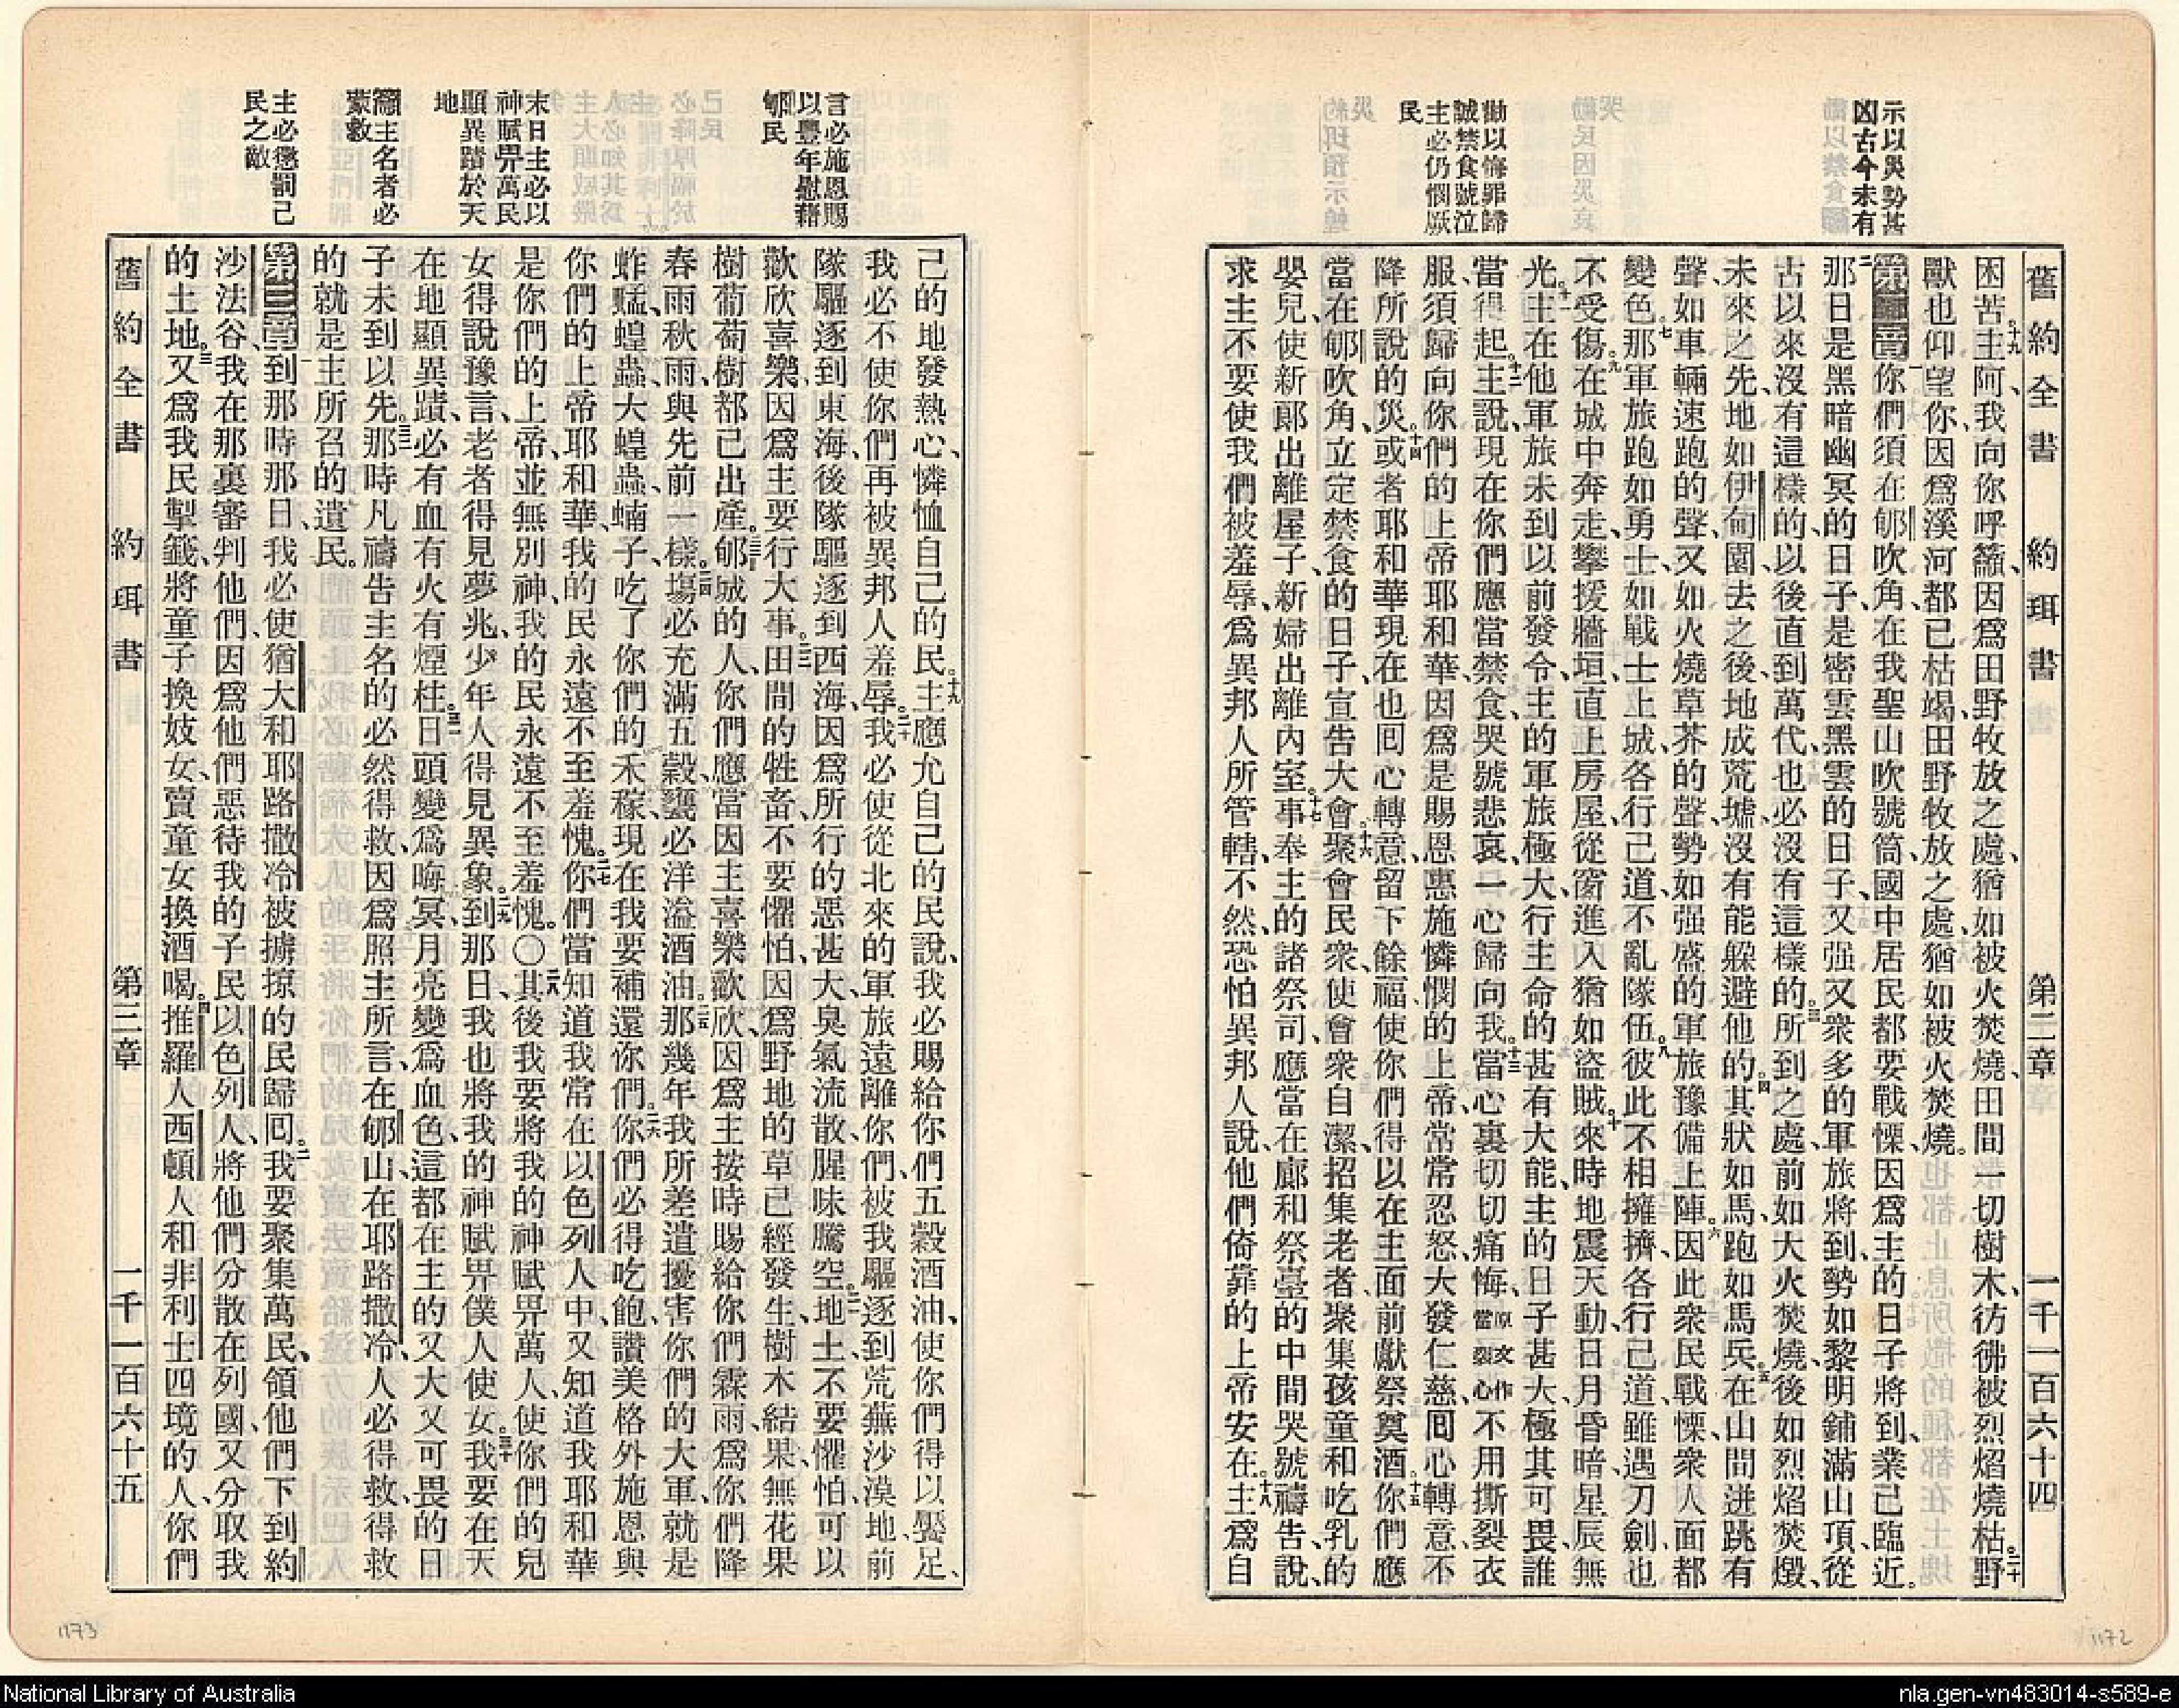 示以災勢甚
凶古今未有
勸以悔罪歸
誠禁食號泣
主必仍憫厥
民
舊約全書 約珥書 第二章 一千一百六十四
困苦。十九主阿、我向你呼籲、因爲田野牧放之處、猶如被火焚燒、田間一切樹木、彷彿被烈焰燒枯。二十野
獸也仰望你、因爲溪河都已枯竭、田野牧放之處、猶如被火焚燒。
第二章 一你們須在郇吹角、在我聖山吹號筒、國中居民都要戰慄、因爲主的日子將到、業已臨近。
二那日是黑暗幽冥的日子、是密雲黑雲的日子、又强又衆多的軍旅將到、勢如黎明鋪滿山頂、從
古以來沒有這樣的、以後直到萬代、也必沒有這樣的。三所到之處、前如大火焚燒、後如烈焰焚燬、
未來之先、地如伊甸園、去之後、地成荒墟、沒有能躱避他的。四其狀如馬、跑如馬兵。五在山間迸跳、有
聲如車輛速跑的聲、又如火燒草芥的聲、勢如强盛的軍旅豫備上陣。六因此衆民戰慄、衆人面都
變色。七那軍旅跑如勇士、如戰士上城、各行己道、不亂隊伍。八彼此不相擁擠、各行己道、雖遇刀劍、也
不受傷。九在城中奔走、攀援牆垣、直上房屋、從窗進入、猶如盜賊。十來時地震天動、日月昏暗、星辰無
光。十一主在他軍旅未到以前發令、主的軍旅極大、行主命的甚有大能、主的日子甚大、極其可畏、誰
當得起。十二主說、現在你們應當禁食、哭號悲哀、一心歸向我。十三當心裏切切痛悔、原文作當裂心不用撕裂衣
服、須歸向你們的上帝耶和華、因爲是賜恩惠施憐憫的上帝、常常忍怒、大發仁慈、囘心轉意、不
降所說的災。十四或者耶和華現在也囘心轉意、留下餘福、使你們得以在主面前獻祭奠酒。十五你們應
當在郇吹角、立定禁食的日子、宣告大會。十六聚會民衆、使會衆自潔、招集老者、聚集孩童和吃乳的
嬰兒、使新郎出離屋子、新婦出離內室。十七事奉主的諸祭司、應當在廊和祭臺的中間哭號禱告、說、
求主不要使我們被羞辱、爲異邦人所管轄、不然、恐怕異邦人說、他們倚靠的上帝安在。十八主爲自
言必施恩賜
以豐年慰藉
郇民
末日主必以
神賦畀萬民
顯異蹟於天
地
籲主名者必
蒙救
主必懲罰己
民之敵
己的地發熱心、憐恤自己的民。十九主應允自己的民說、我必賜給你們五穀酒油、使你們得以饜足、
我必不使你們再被異邦人羞辱。二十我必使從北來的軍旅遠離你們、被我驅逐到荒蕪沙漠地、前
隊驅逐到東海、後隊驅逐到西海、因爲所行的惡甚大、臭氣流散、腥味騰空。二一地土、不要懼怕、可以
歡欣喜樂、因爲主要行大事。二二田間的牲畜、不要懼怕、因爲野地的草已經發生、樹木結果、無花果
樹葡萄樹都已出產。二三郇城的人、你們應當因主喜樂歡欣、因爲主按時賜給你們霖雨、爲你們降
春雨秋雨、與先前一樣。二四塲必充滿五穀、甕必洋溢酒油。二五那幾年我所差遣擾害你們的大軍、就是
蚱蜢、蝗蟲、大蝗蟲、蝻子、吃了你們的禾稼、現在我要補還你們。二六你們必得吃飽、讚美格外施恩與
你們的上帝耶和華、我的民永遠不至羞愧。二七你們當知道我常在以色列人中、又知道我耶和華
是你們的上帝、並無別神、我的民永遠不至羞愧。○二八其後我要將我的神賦畀萬人、使你們的兒
女得說豫言、老者得見夢兆、少年人得見異象。二九到那日、我也將我的神賦畀僕人使女。三十我要在天
在地顯異蹟、必有血有火有煙柱。三一日頭變爲晦冥、月亮變爲血色、這都在主的又大又可畏的日
子未到以先。三二那時凡禱告主名的必然得救、因爲照主所言、在郇山、在耶路撒冷、人必得救、得救
的就是主所召的遺民。
第三章 一到那時那日、我必使猶大和耶路撒冷被擄掠的民歸囘。二我要聚集萬民、領他們下到約
沙法谷、我在那裏審判他們、因爲他們惡待我的子民以色列人、將他們分散在列國、又分取我
的土地。三又爲我民掣籤、將童子換妓女、賣童女換酒喝。四推羅人西頓人和非利士四境的人、你們
舊約全書 約珥書 第三章 一千一百六十五
1173
1172
National Library of Australia
nla.gen-vn483014-s589-e